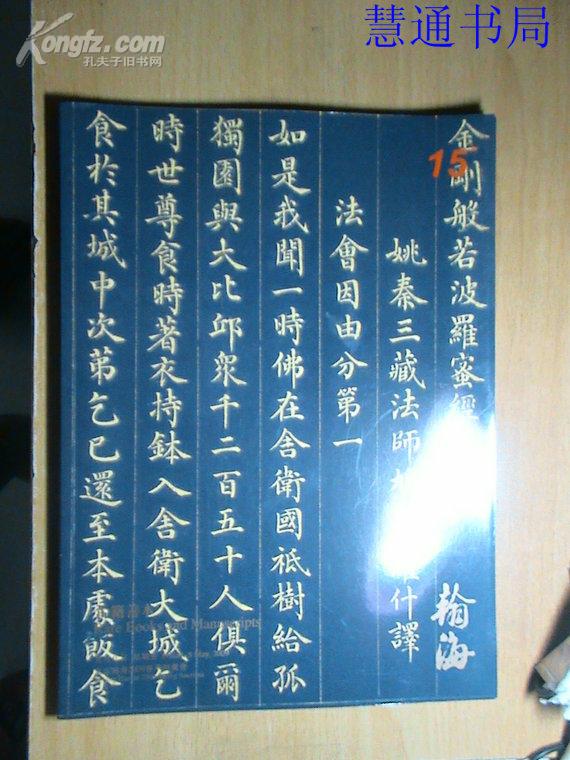 慧通书局
Kongfz.com
孔夫子旧书网
15
金剛般若波羅蜜經
姚秦三藏法師 什譯
法會因由分第一
如是我聞一時佛在舍衛國祗樹給孤
獨園與大比邱衆千二百五十人俱爾
時世尊食時著衣持鉢入舍衛大城乞
食於其城中次苐乞已還至本處飯食
翰海
Books and Manuscripts